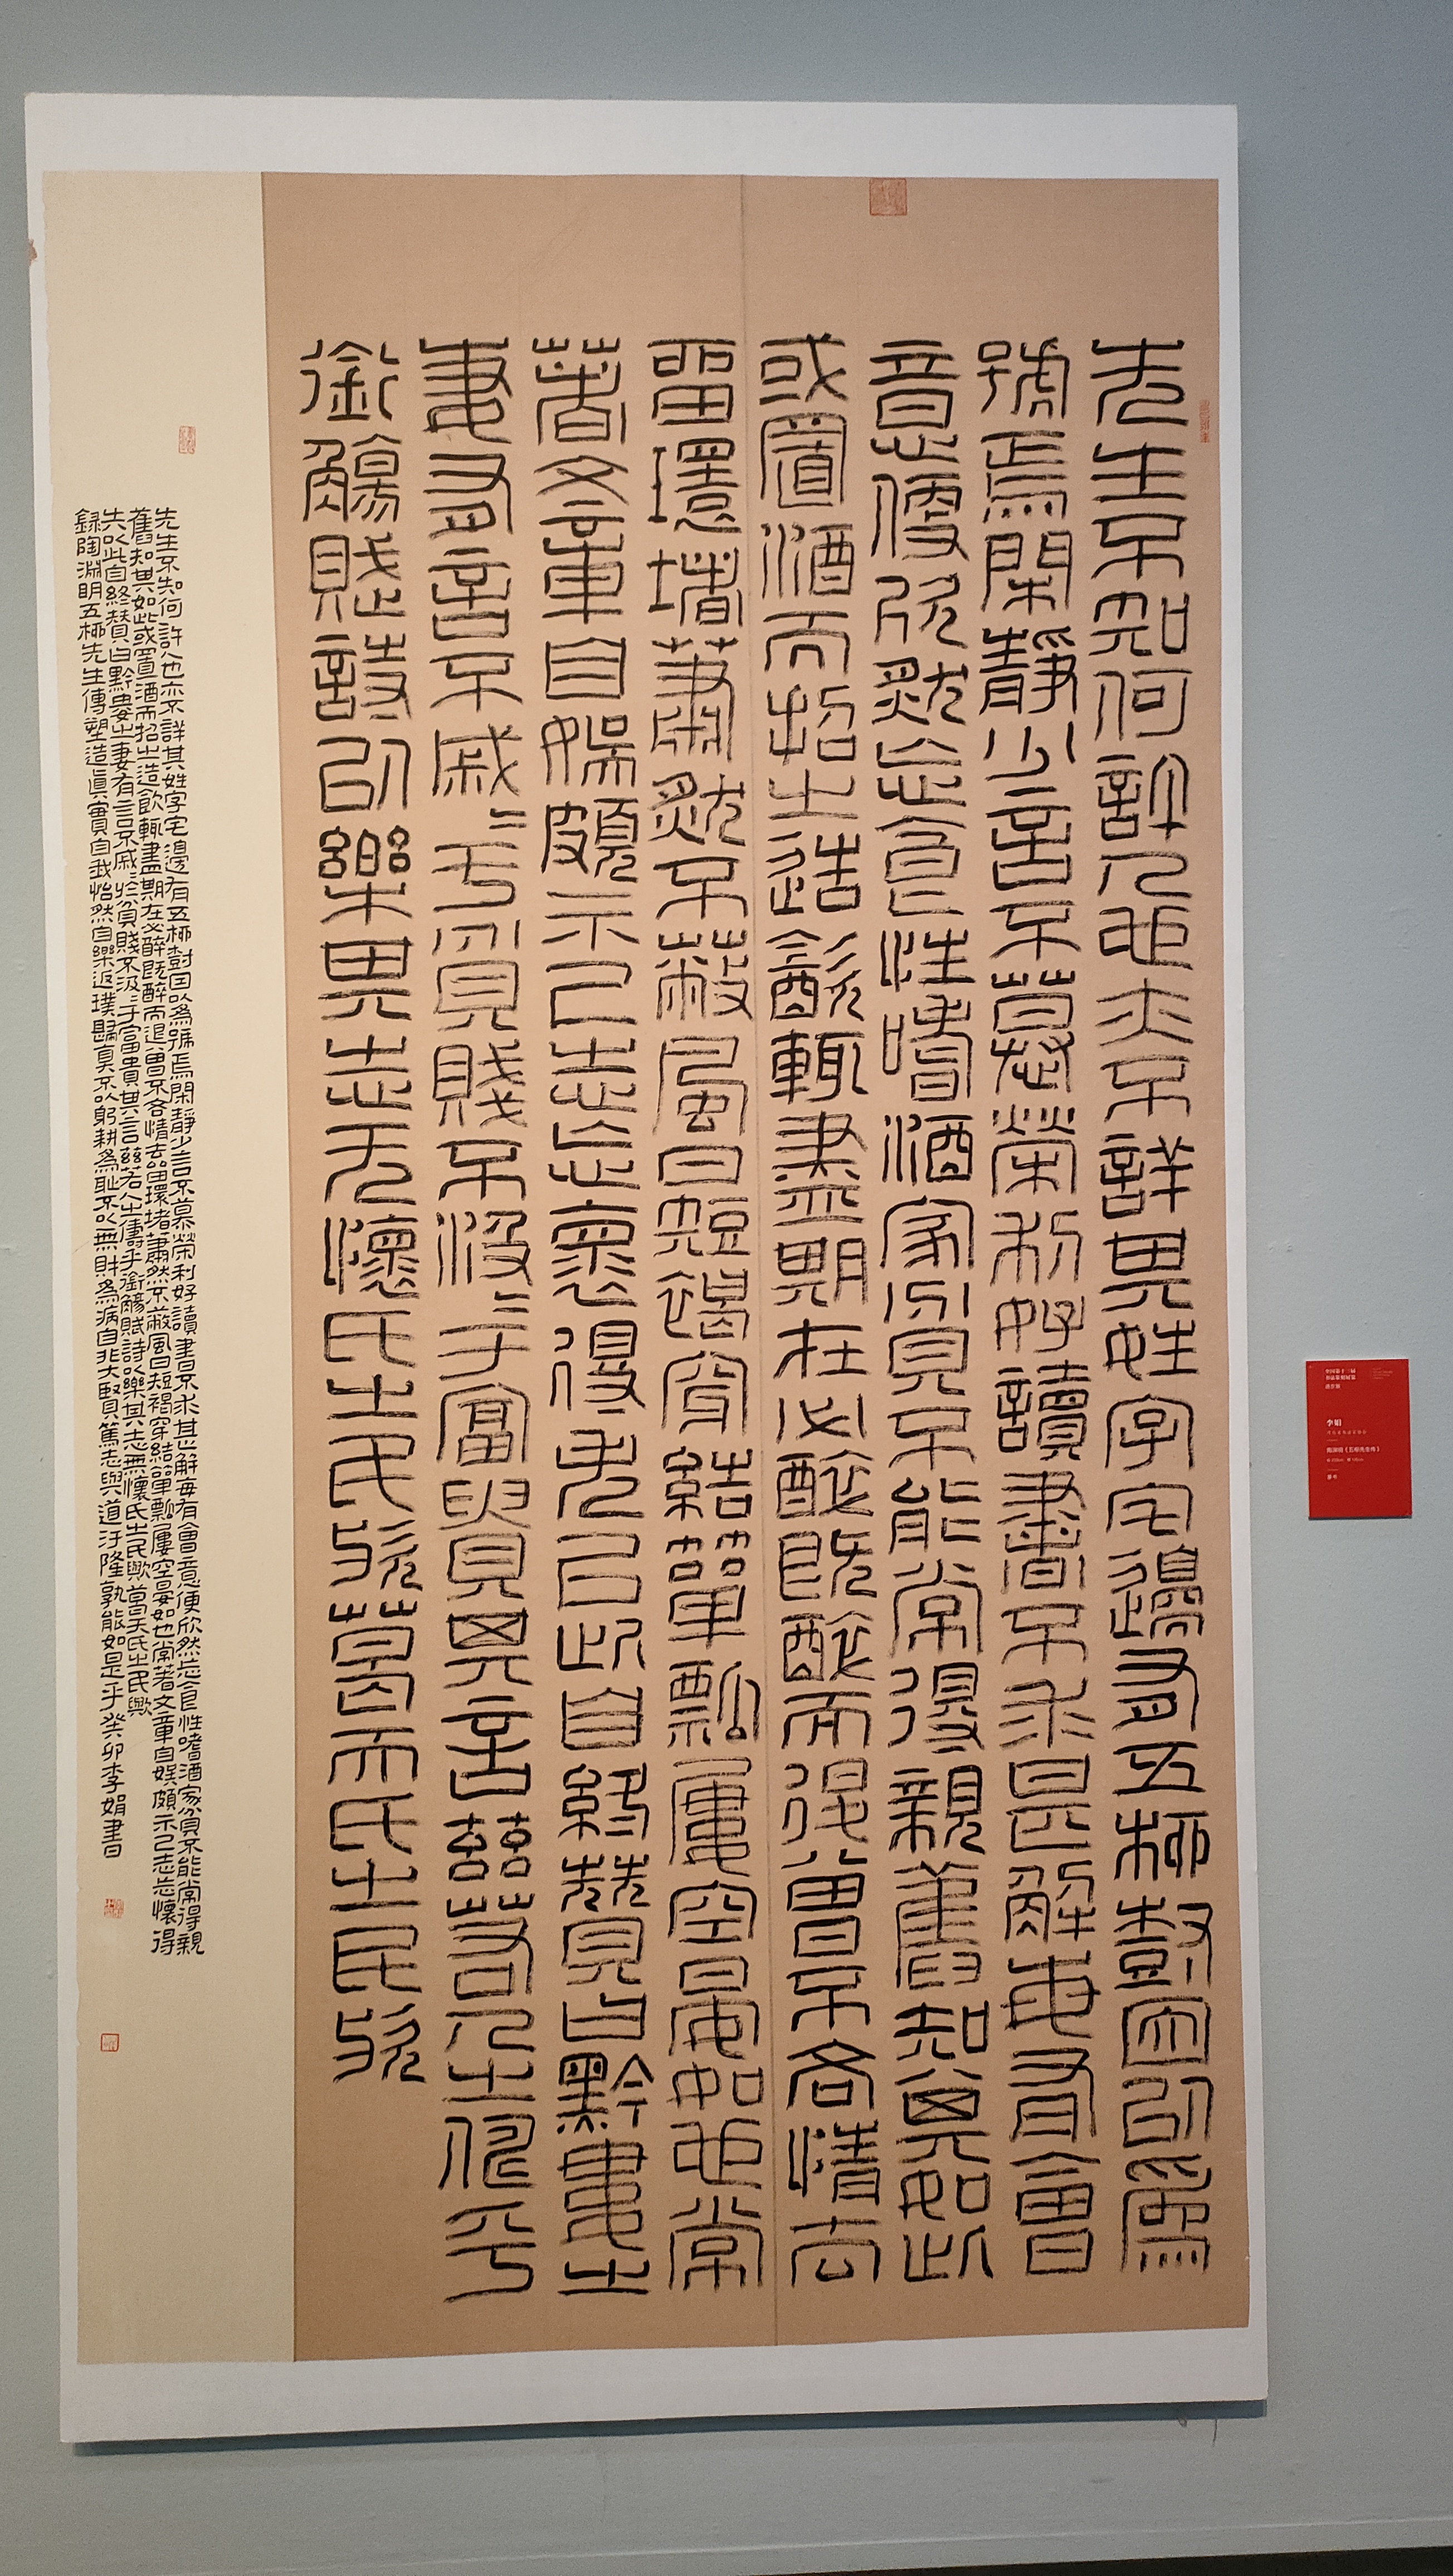 先生不知何許人也亦不詳其姓字宅邊有五柳樹因以爲
號焉閑靜少言不慕榮利好讀書不求甚解每有會
意便欣然忘食性嗜酒家貧不能常得親舊知其如此
或置酒而招之造飲輒盡期在必醉既醉而退曾不吝情去
留環堵蕭然不蔽風日短褐穿結簞瓢屢空晏如也常
著文章自娛頗示己志忘懷得失以此自終贊曰黔婁之
妻有言不戚〻于貧賤不汲〻于富貴其言茲若人之儔乎
銜觴賦詩以樂其志无懷氏之民歟葛天氏之民歟
先生不知何許人也亦不詳其姓字宅邊有五柳樹因以爲號焉閑靜少言不慕榮利好讀書不求甚解每有會意便欣然忘食性嗜酒家貧不能常得親
舊知其如此或置酒而招之造飲輒盡期在必醉既醉而退曾不吝情去留環堵蕭然不蔽風日短褐穿結簞瓢屢空晏如也常著文章自娛頗示己志忘懷得
失以此自終贊曰黔婁之妻有言不戚〻於貧賤不汲〻于富貴其言茲若人之儔乎銜觴賦詩以樂其志無懷氏之民歟葛天氏之民歟
録陶淵明五柳先生傳塑造眞實自我怡然自樂返璞歸真不以躬耕爲恥不以無財爲病自非大賢篤志與道汙隆孰能如是乎癸卯李娟書
李娟
陶渊明《五柳先生传》